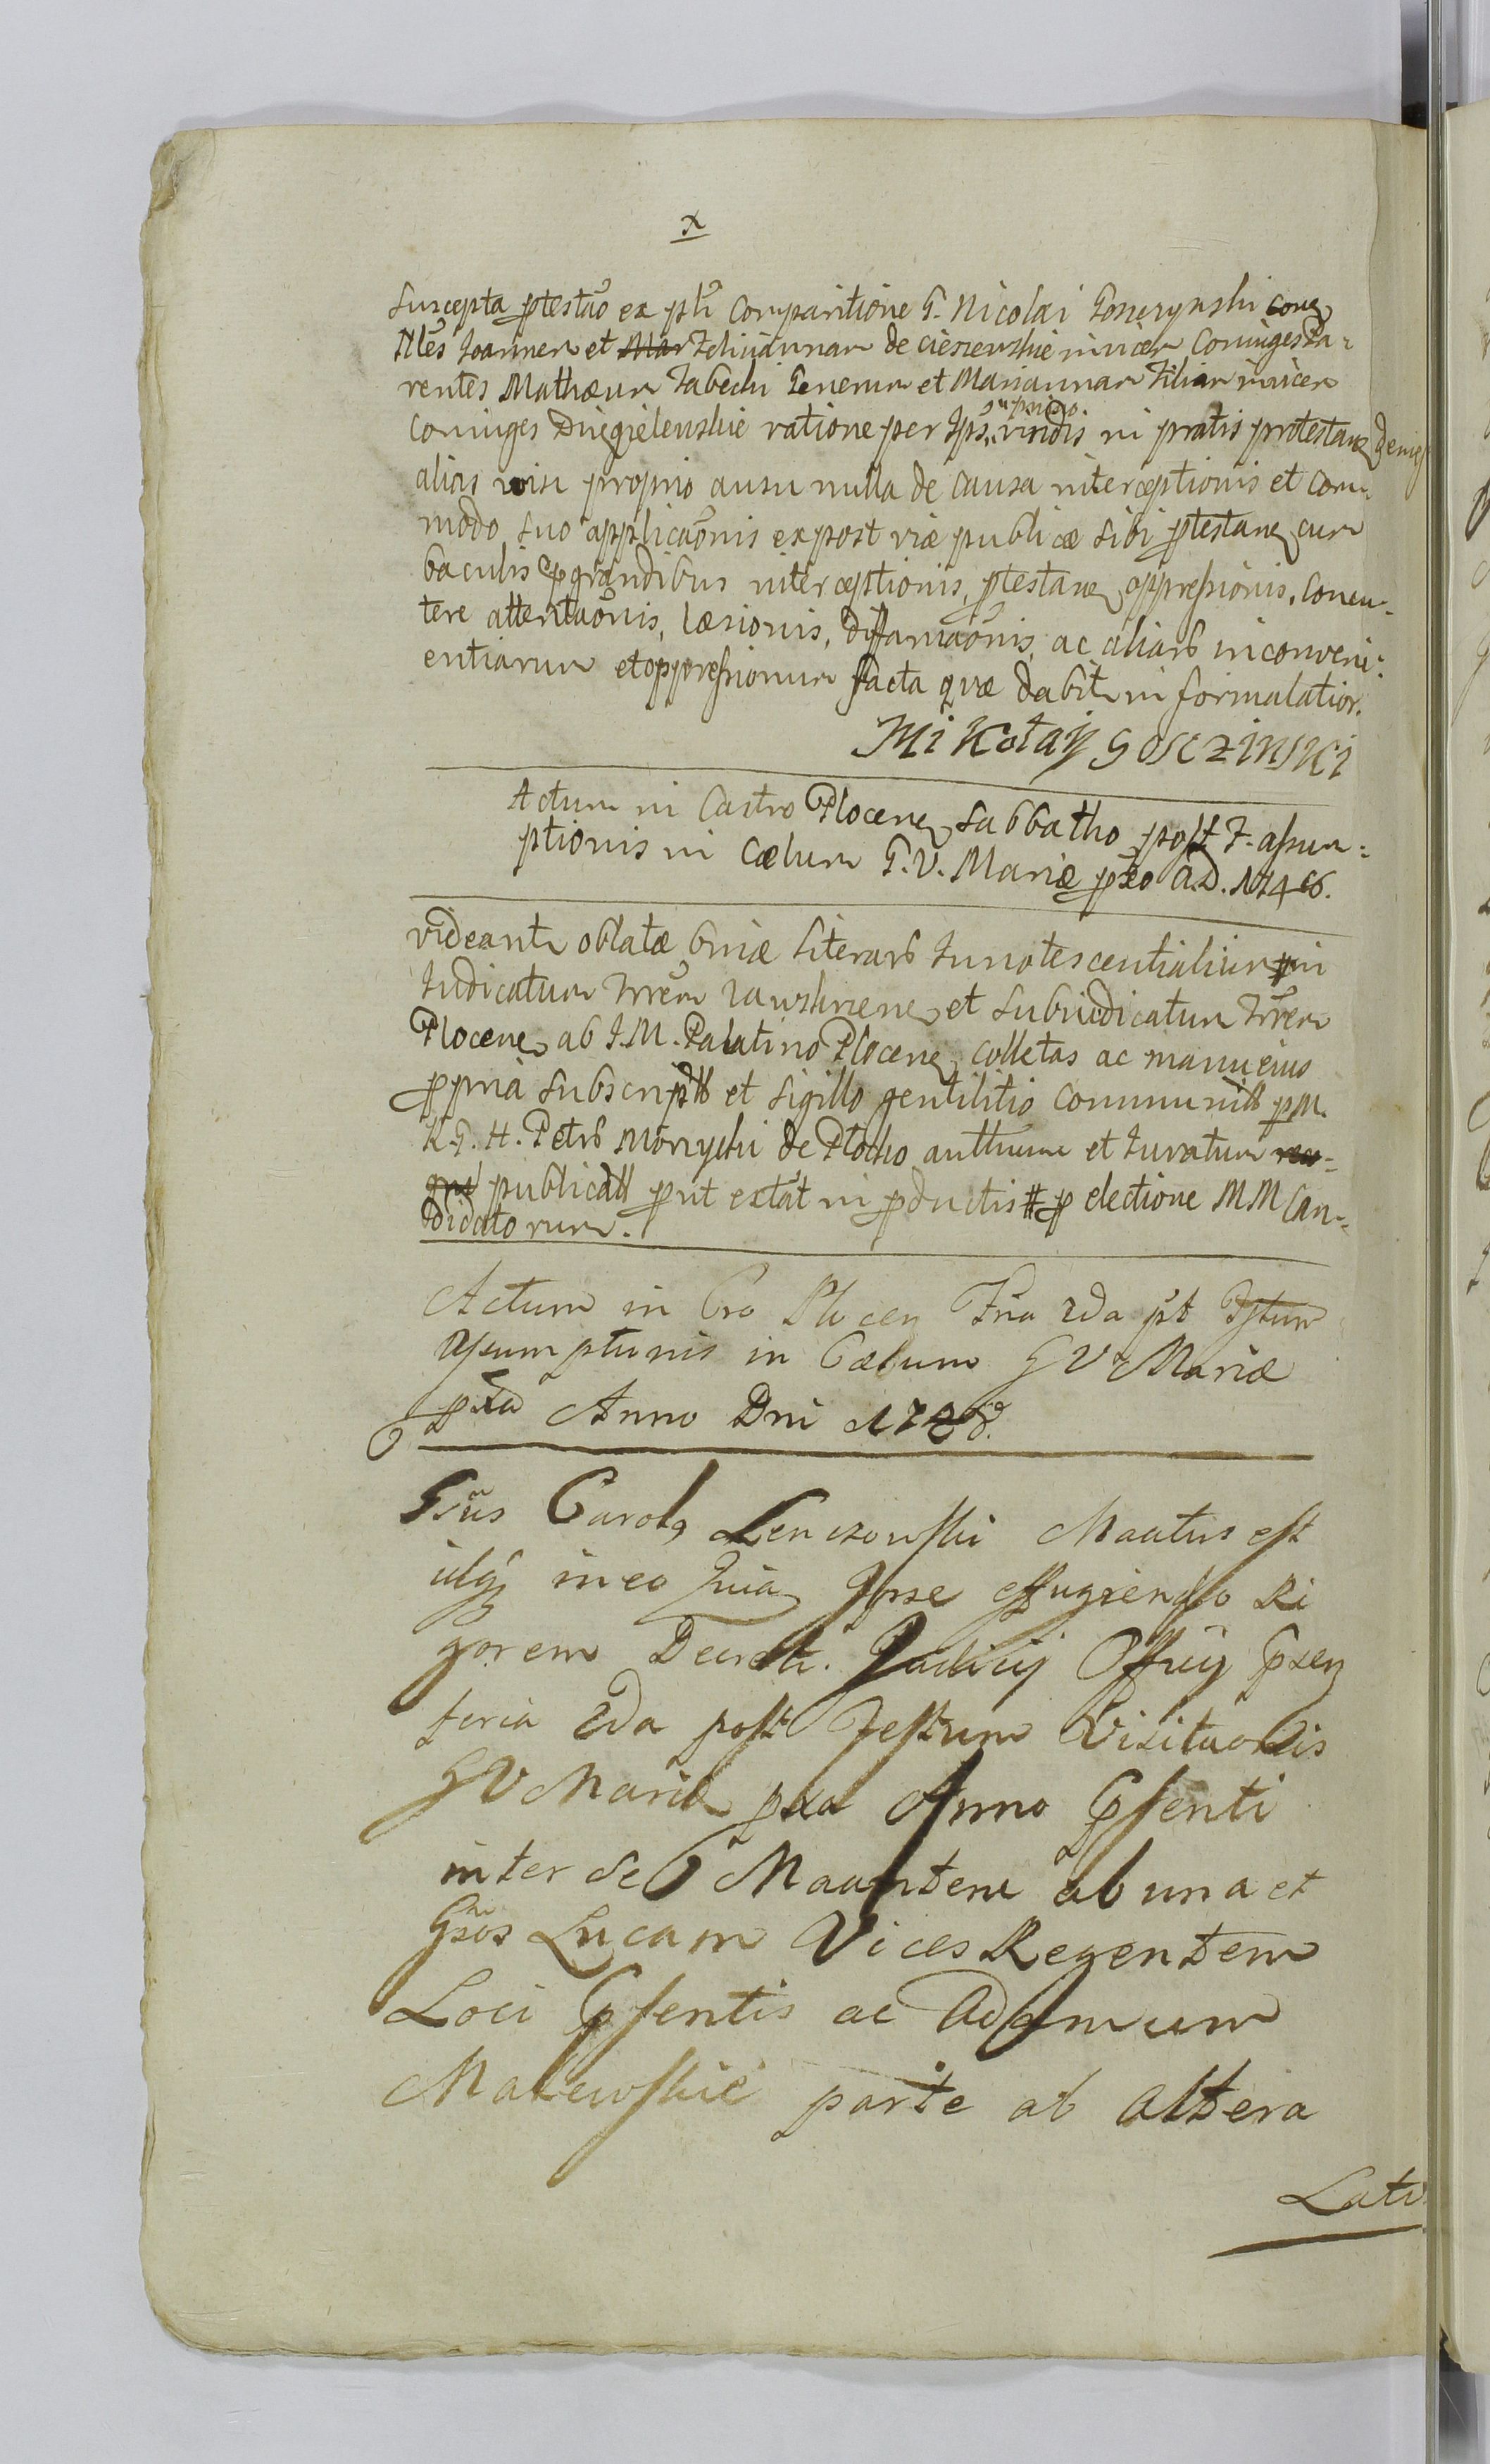 x
Suscepta ptestao ex pti Comparitione G. Nicolai Goszczynski cona
Nles Joannem et Mar Feliciannam de Cieszewskie invicem Coniuges Pa-
rentes Mathæum Jabechi Generum et Mariannam Filiam invicem
Coniuges Dzięgielewskie ratione per Ipsos in pratis protestan
alias proprio ausu nulla de causa interceptionis et Com-
modo suo applicaonis ex post viæ publicæ sibi ptestan cum
baculis pgrandibus interceptionis, ptestan oppressionis, Concu-
tere attentaonis, læsionis, diffamaonis, ac aliarb inconveni-
entiarum et oppressionum facta quæ dabitr in forma latior.
Mikołay GOSCZINSKi
Actum in Castro Plocen Sabbatho post F. assum-
ptionis in Cælum B. V. Mariæ pxo A.D. 1746.
videantr oblatæ binæ Literarb Innotescentialium in
Iudicatum Trrem et Subiudicatum Trrem
Plocen ab I.M. Palatino Plocen colletas ac manu eius
ppria subscriptb et Sigillo gentilitio communitb p M.
K.G.H. Petrb de Plocko authum et Iuratum
publicatb put extat in pductis # p electione MM Can-
didatorum.
Actum in Cro Plocen Fria 2da pt Fstum
Assumptionis in Cælum B V Mariæ
pxa Anno Dni 1746.
Gsus Carolq Lenczowski Mactus est
idq in eo Quia Ipse effugiendo Ri
gorem Decreti Judicij Officij psen
feria 2da post Festum Visitaonis
B V Mariæ pxa Anno psenti
inter se Mactantem ab una et
Gsos Lucam Vices Regentem
Loci psentis ac Adamum
Makowskie parte ab altera
Lati